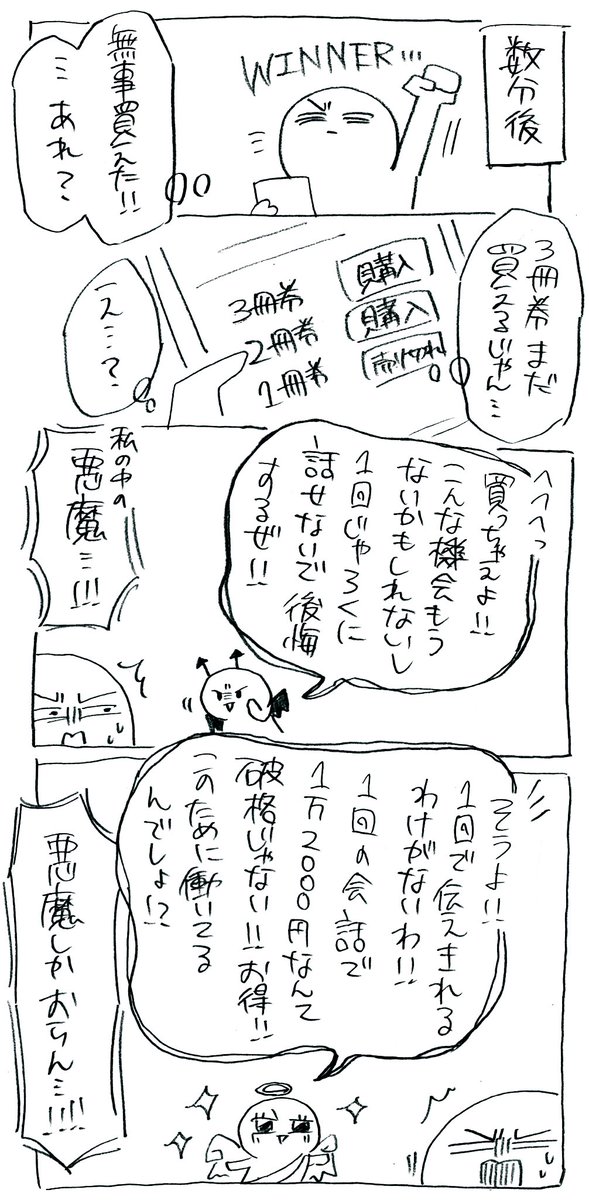 数分後
WINNER…
無事買えた!!
…あれ?
3冊券まだ
買えるじゃん…
購入
購入
売り切れ
3冊券
2冊券
1冊券
え…?
へへへっ
買っちゃえよ!!
こんな機会もう
ないかもしれないし
1回じゃろくに
話せないで後悔
するぜ!!
私の中の
悪魔…!!!
そうよ!!
1回で伝えきれる
わけがないわ!!
1回の会話で
1万2000円なんて
破格じゃない!!お得!!
このために働いてる
んでしょ!?
悪魔しかおらん…!!!!